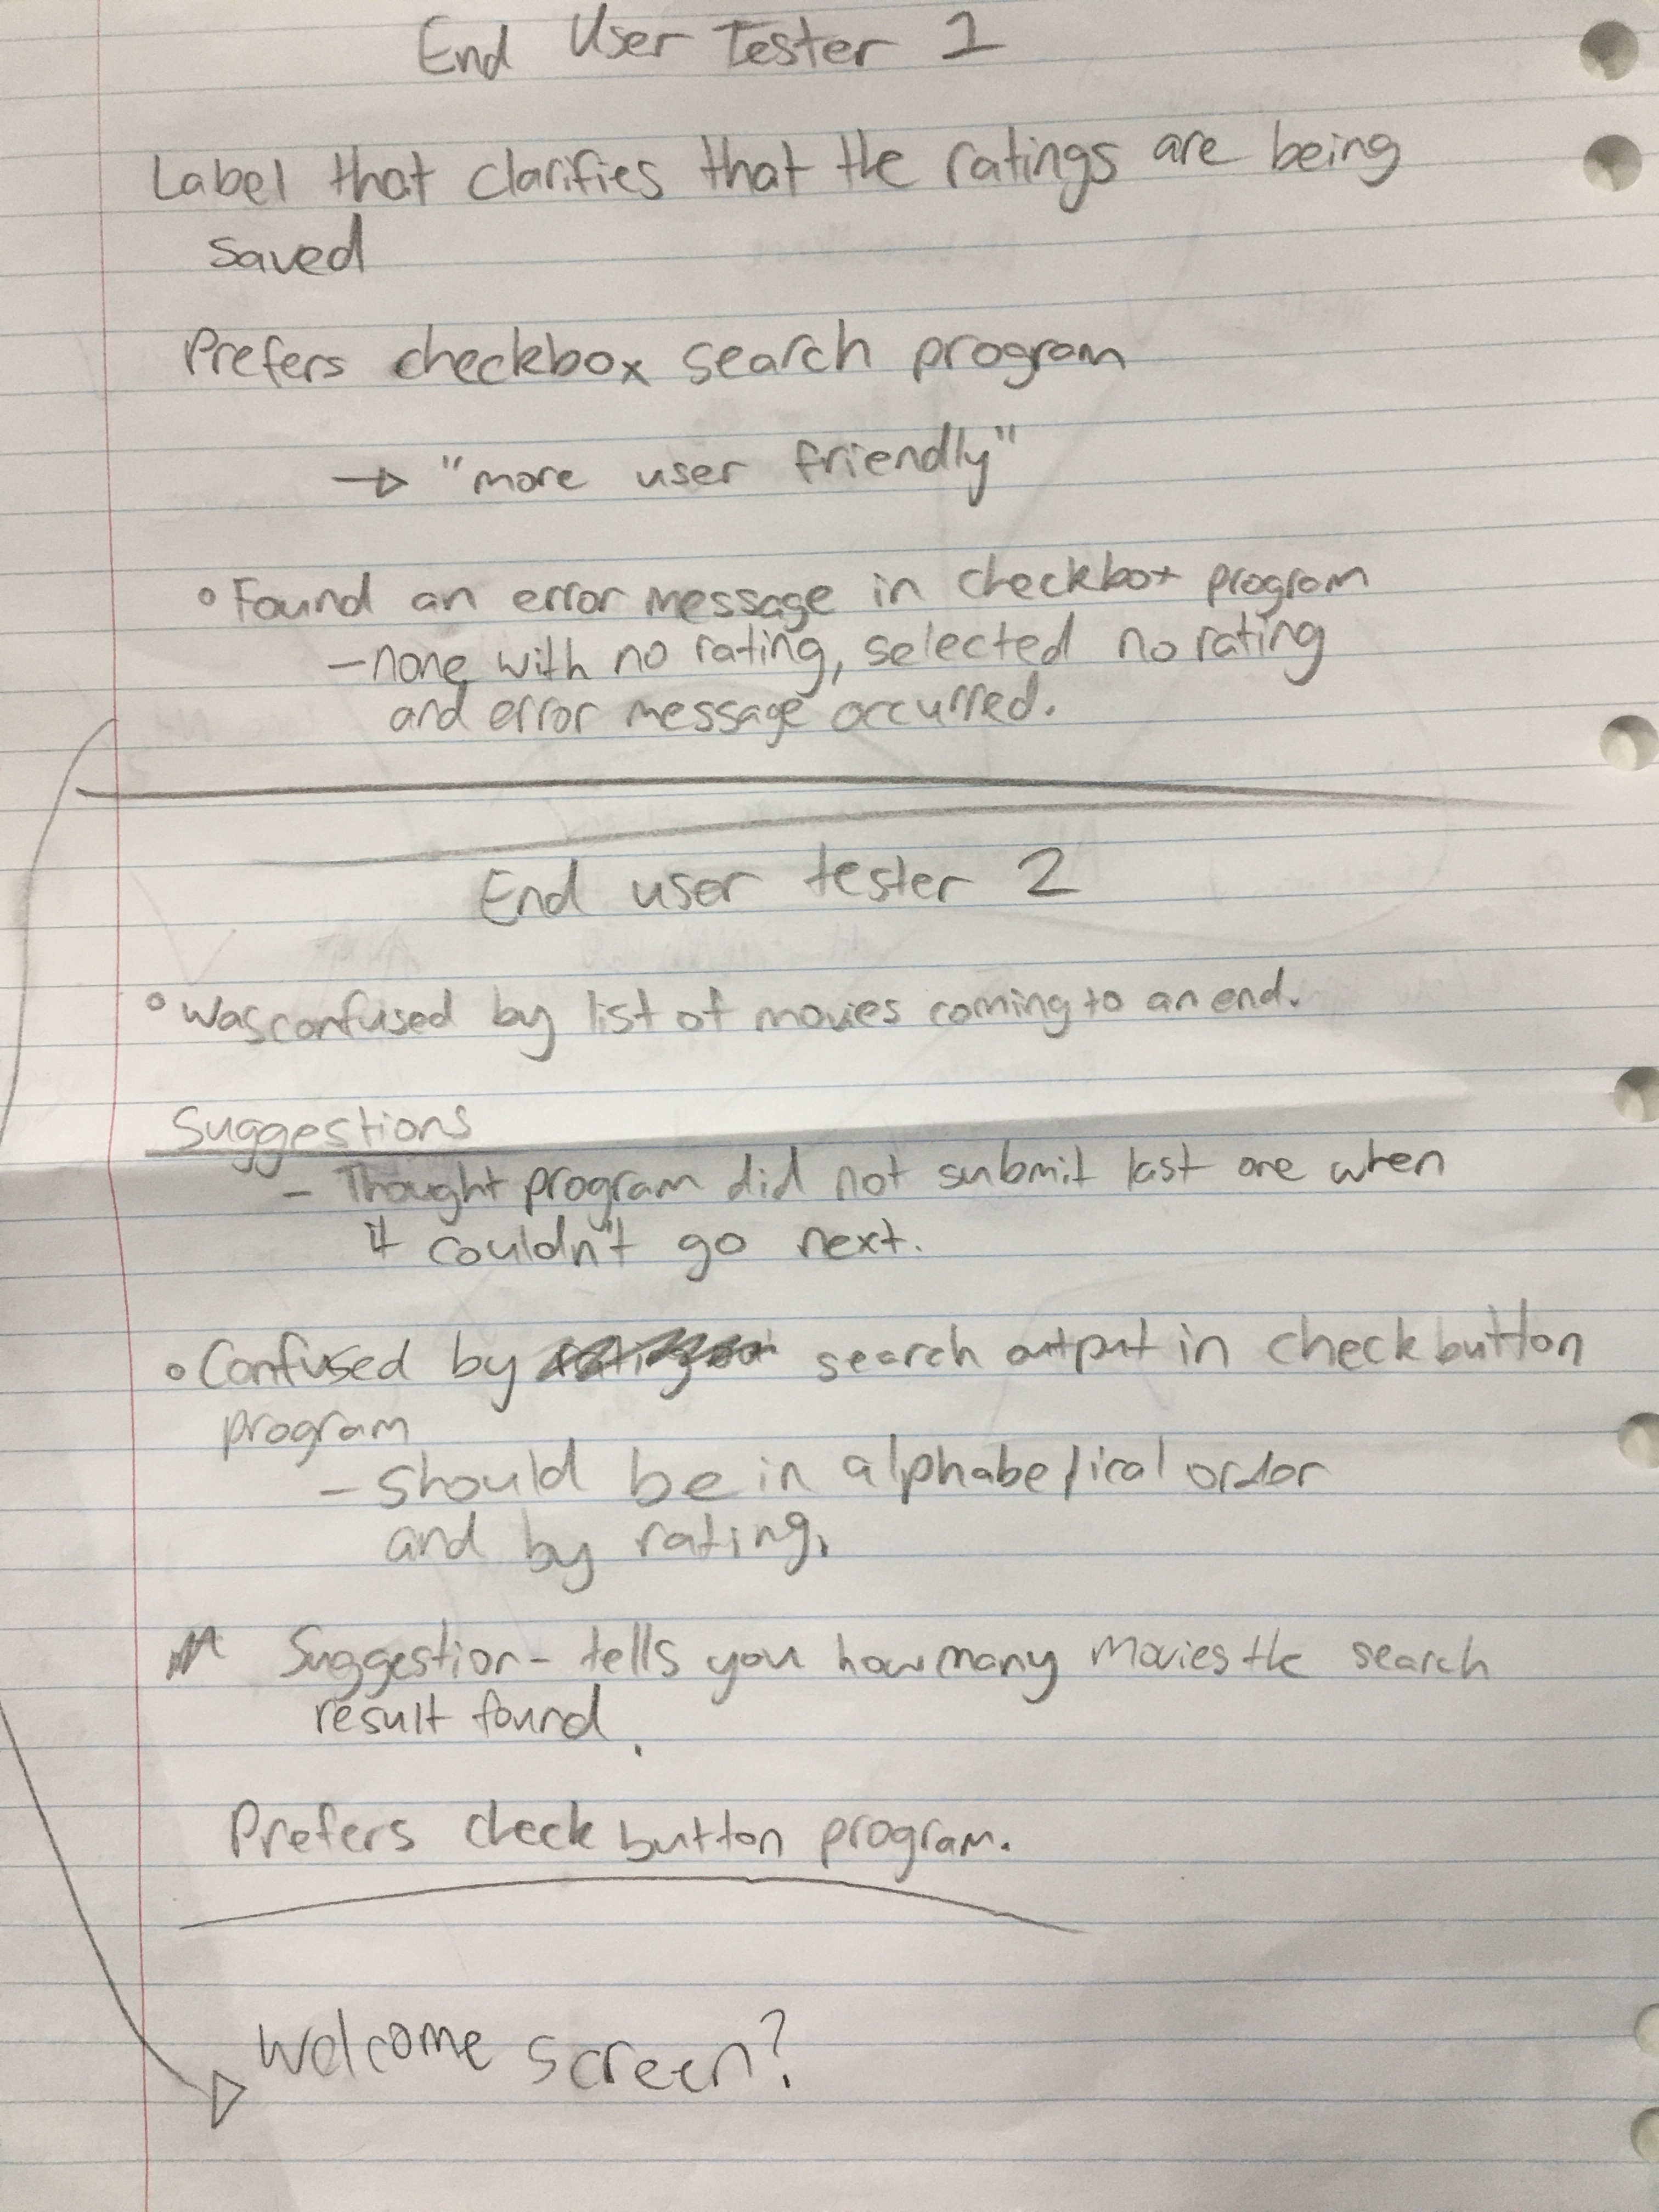 End User Tester 1
Label that clarifies that the ratings are being
saved
Prefers checkbox search program
→ "more user friendly"
° Found an error message in checkbox program
- none with no rating, selected no rating
and error message occurred.
End user tester 2
° was confused by list of movies coming to an end.
Suggestions
- Thought program did not submit last one when
it couldn't go next.
° Confused by search output in check button
program
- should be in alphabetical order
and by rating.
Suggestion - tells you how many movies the search
result found.
Prefers check button program.
Welcome screen?